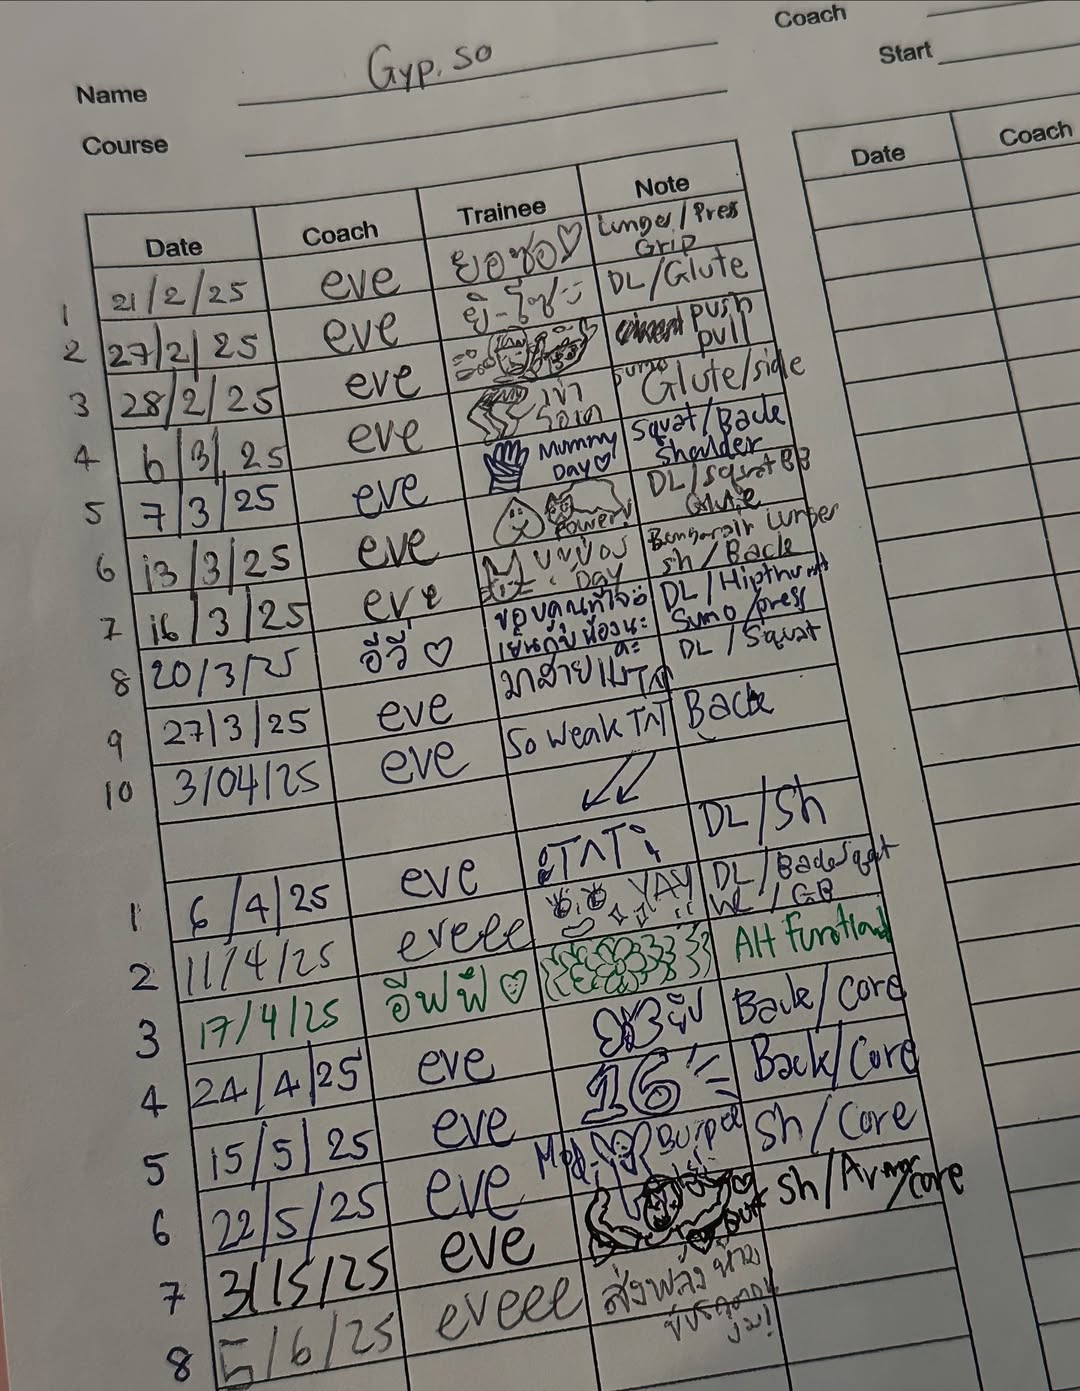 Coach
Name Gyp. so
Start
Course
Date Coach Trainee Note
Date Coach
1 21/2/25 eve ยอซอ♡ Lunges/Press
Grip
2 27/2/25 eve DL/Glute
3 28/2/25 eve push
pull
4 6/3/25 eve เข่า Sumo Glute/side
5 7/3/25 eve Mummy Day♡ Squat/Back
Shoulder
6 13/3/25 eve Power! DL/squat BB
Glute
7 16/3/25 eve Day
Sh/Back
8 20/3/25 อีวี่ ♡ ขอบคุณที่ใจ
เย็นกับน้องนะ
คะ DL/Hipthrust
Sumo/press
9 27/3/25 eve มาสาย DL/Squat
10 3/04/25 eve So weak TAT Back
1 6/4/25 eve TAT DL/Sh
2 11/4/25 eveee YAY!! DL/BackSquat
3 17/4/25 อีฟฟี่ ♡
4 24/4/25 eve Back/Core
5 15/5/25 eve 16 Back/Core
6 22/5/25 eve Sh/Core
7 31/5/25 eve Sh/Arm/core
8 5/6/25 eveee ส่งพลัง